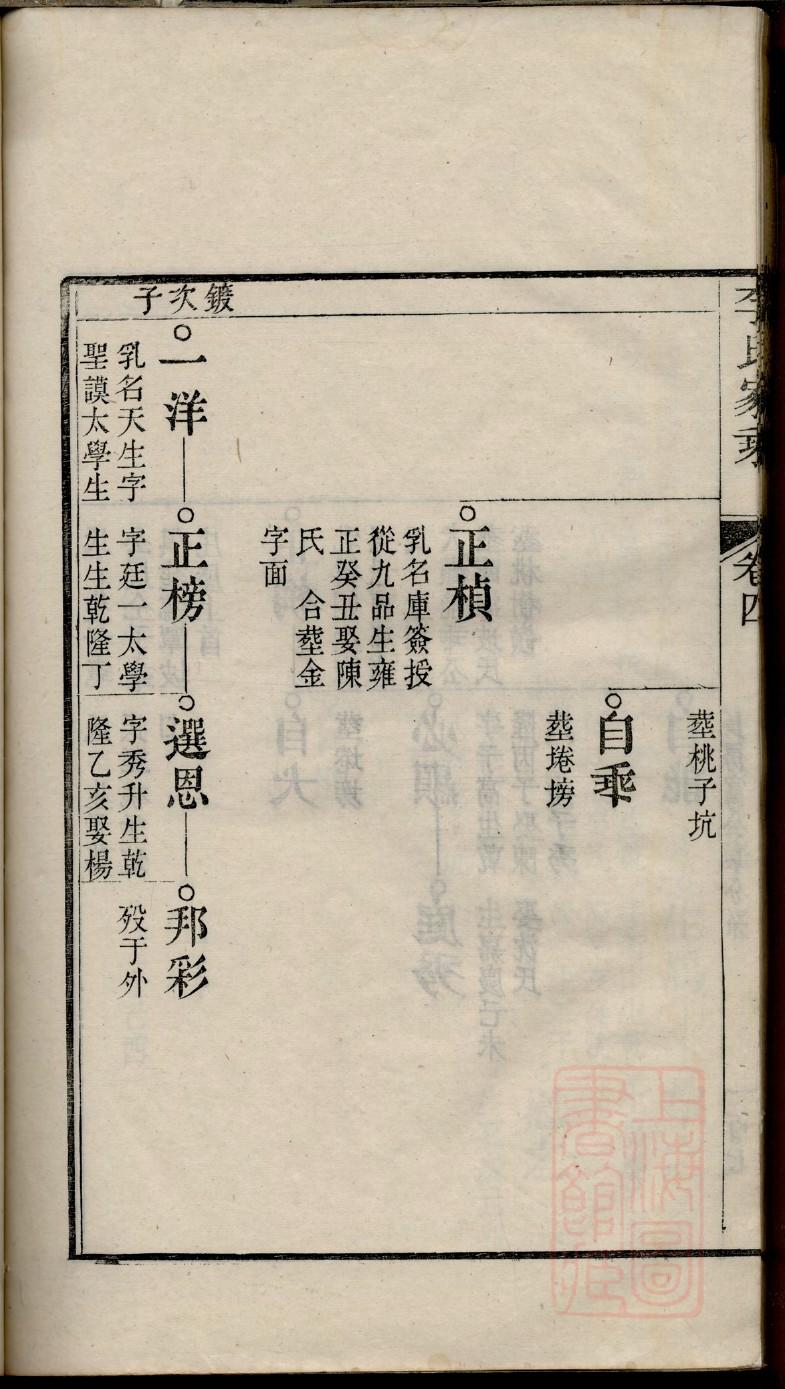 李氏家乘
卷四
塟桃子坑
自乘
塟埢塝
正楨
乳名庫簽授
從九品生雍
正癸丑娶陳
氏　合塟金
字面
鍍次子
一洋
乳名天生字
聖謨太學生
正榜
字廷一太學
生生乾隆丁
選恩
字秀升生乾
隆乙亥娶楊
邦彩
歿于外
上海圖書館藏